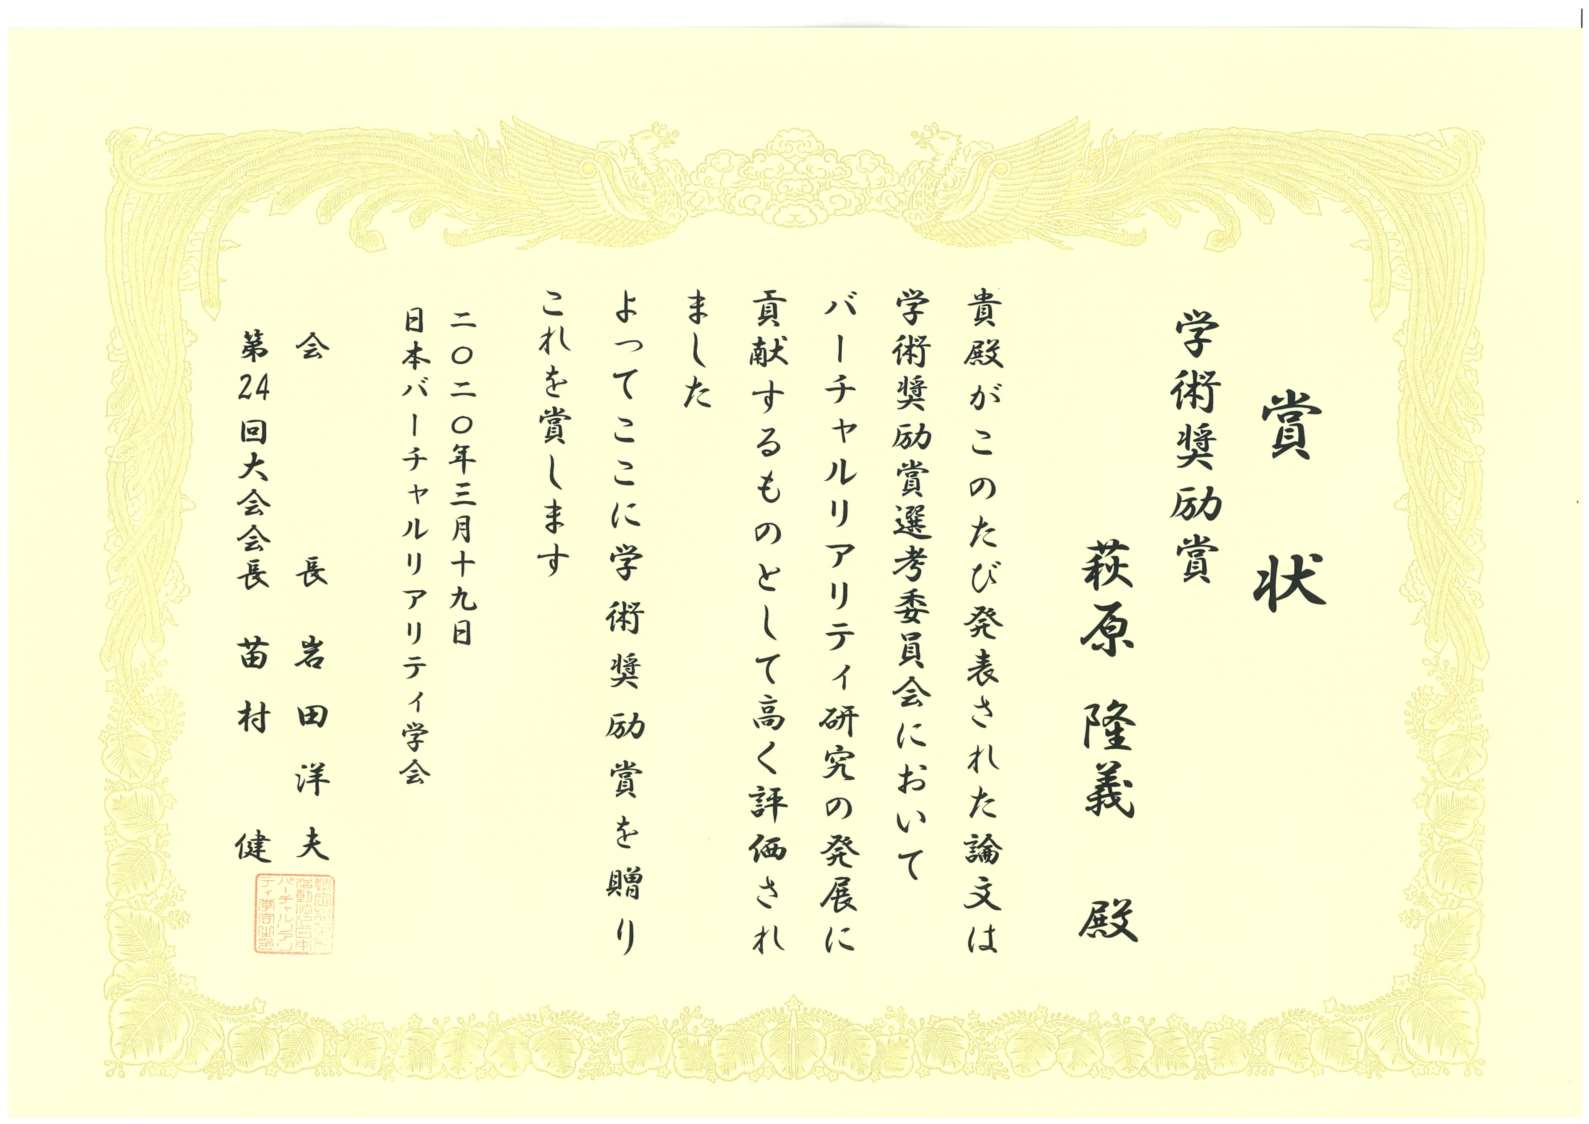 賞状
学術奨励賞
萩原 隆義 殿
貴殿がこのたび発表された論文は
学術奨励賞選考委員会において
バーチャルリアリティ研究の発展に
貢献するものとして高く評価され
ました
よってここに学術奨励賞を贈り
これを賞します
二〇二〇年三月十九日
日本バーチャルリアリティ学会
会長 岩田洋夫
第24回大会会長 苗村 健